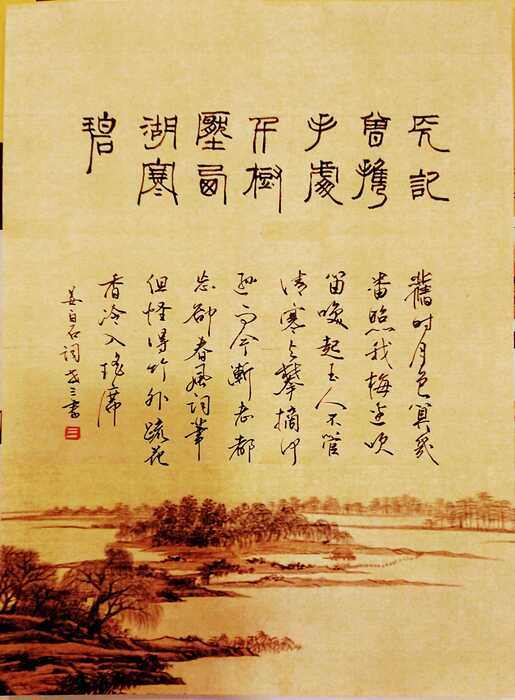 長記
曾攜
手處
千樹
壓西
湖寒
碧
舊時月色算幾
番照我梅邊吹
笛喚起玉人不管
清寒與攀摘何
遜而今漸老都
忘卻春風詞筆
但怪得竹外疏花
香冷入瑤席
姜白石詞三書
三